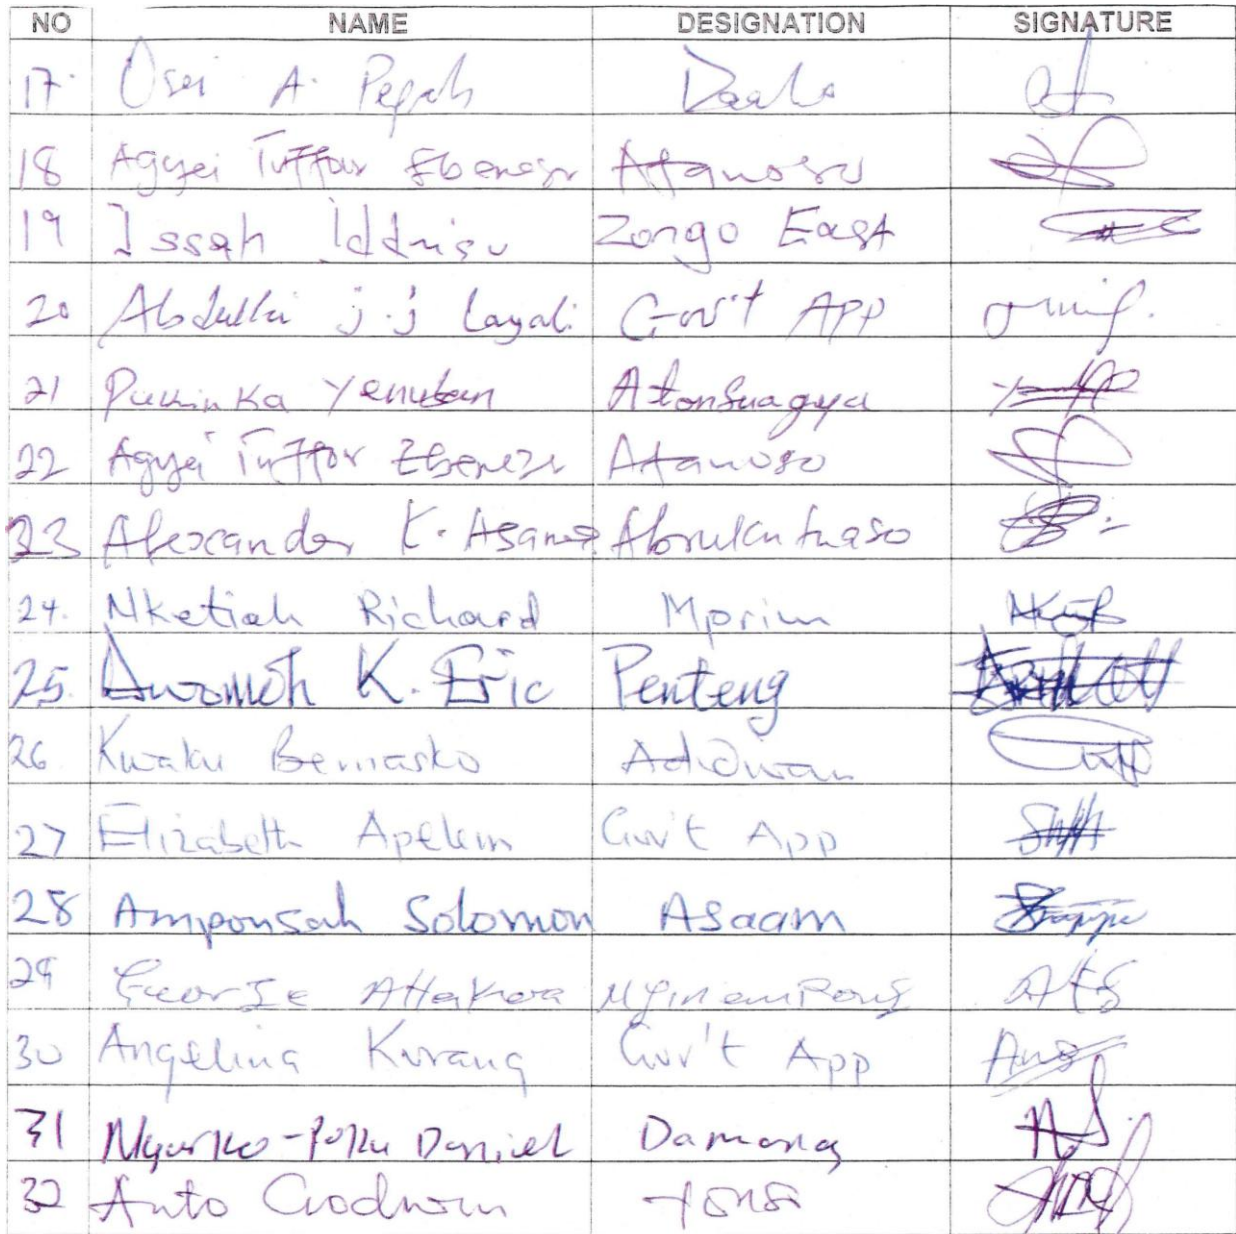 NO NAME DESIGNATION SIGNATURE
17. Osei A. Pepah Daaho
18 Agyei Tuffour Ebenezer Afanoso
19 Issah Iddrisu Zongo East
20 Abdullai j.j Layali Gov't App
21 Puminka Yenuban Atonsuagya
22 Agyei Tuffor Ebenezer Atanoso
23 Alexander K. Asamoa Abrukutuaso
24. Nketiah Richard Mprim
25. Awomoh K. Eric Penteng
26. Kwaku Bernasko Adidwan
27 Elizabeth Apekum Gov't App
28 Amponsah Solomon Asaam
29 George Attakora Nyinampong
30 Angelina Kurang Gov't App
31 Nyarko-Poku Daniel Damang
32 Anto Godwin Yonso